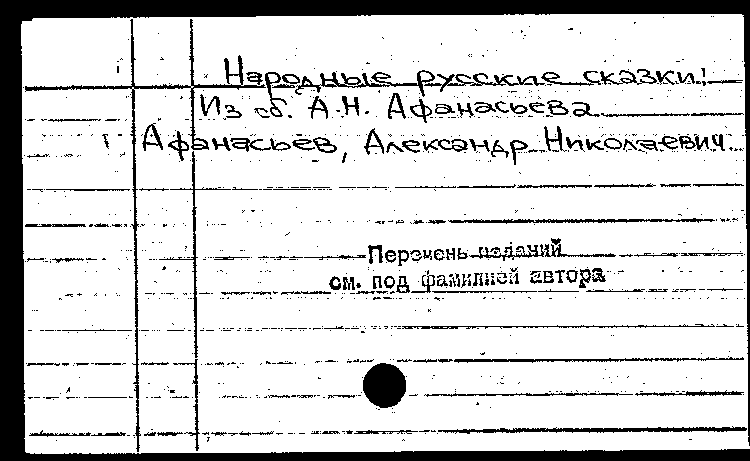 Народные русские сказки:
Из сб. А.Н. Афанасьева
Афанасьев, Александр Николаевич.
Перечень изданий
см. под фамилией автора